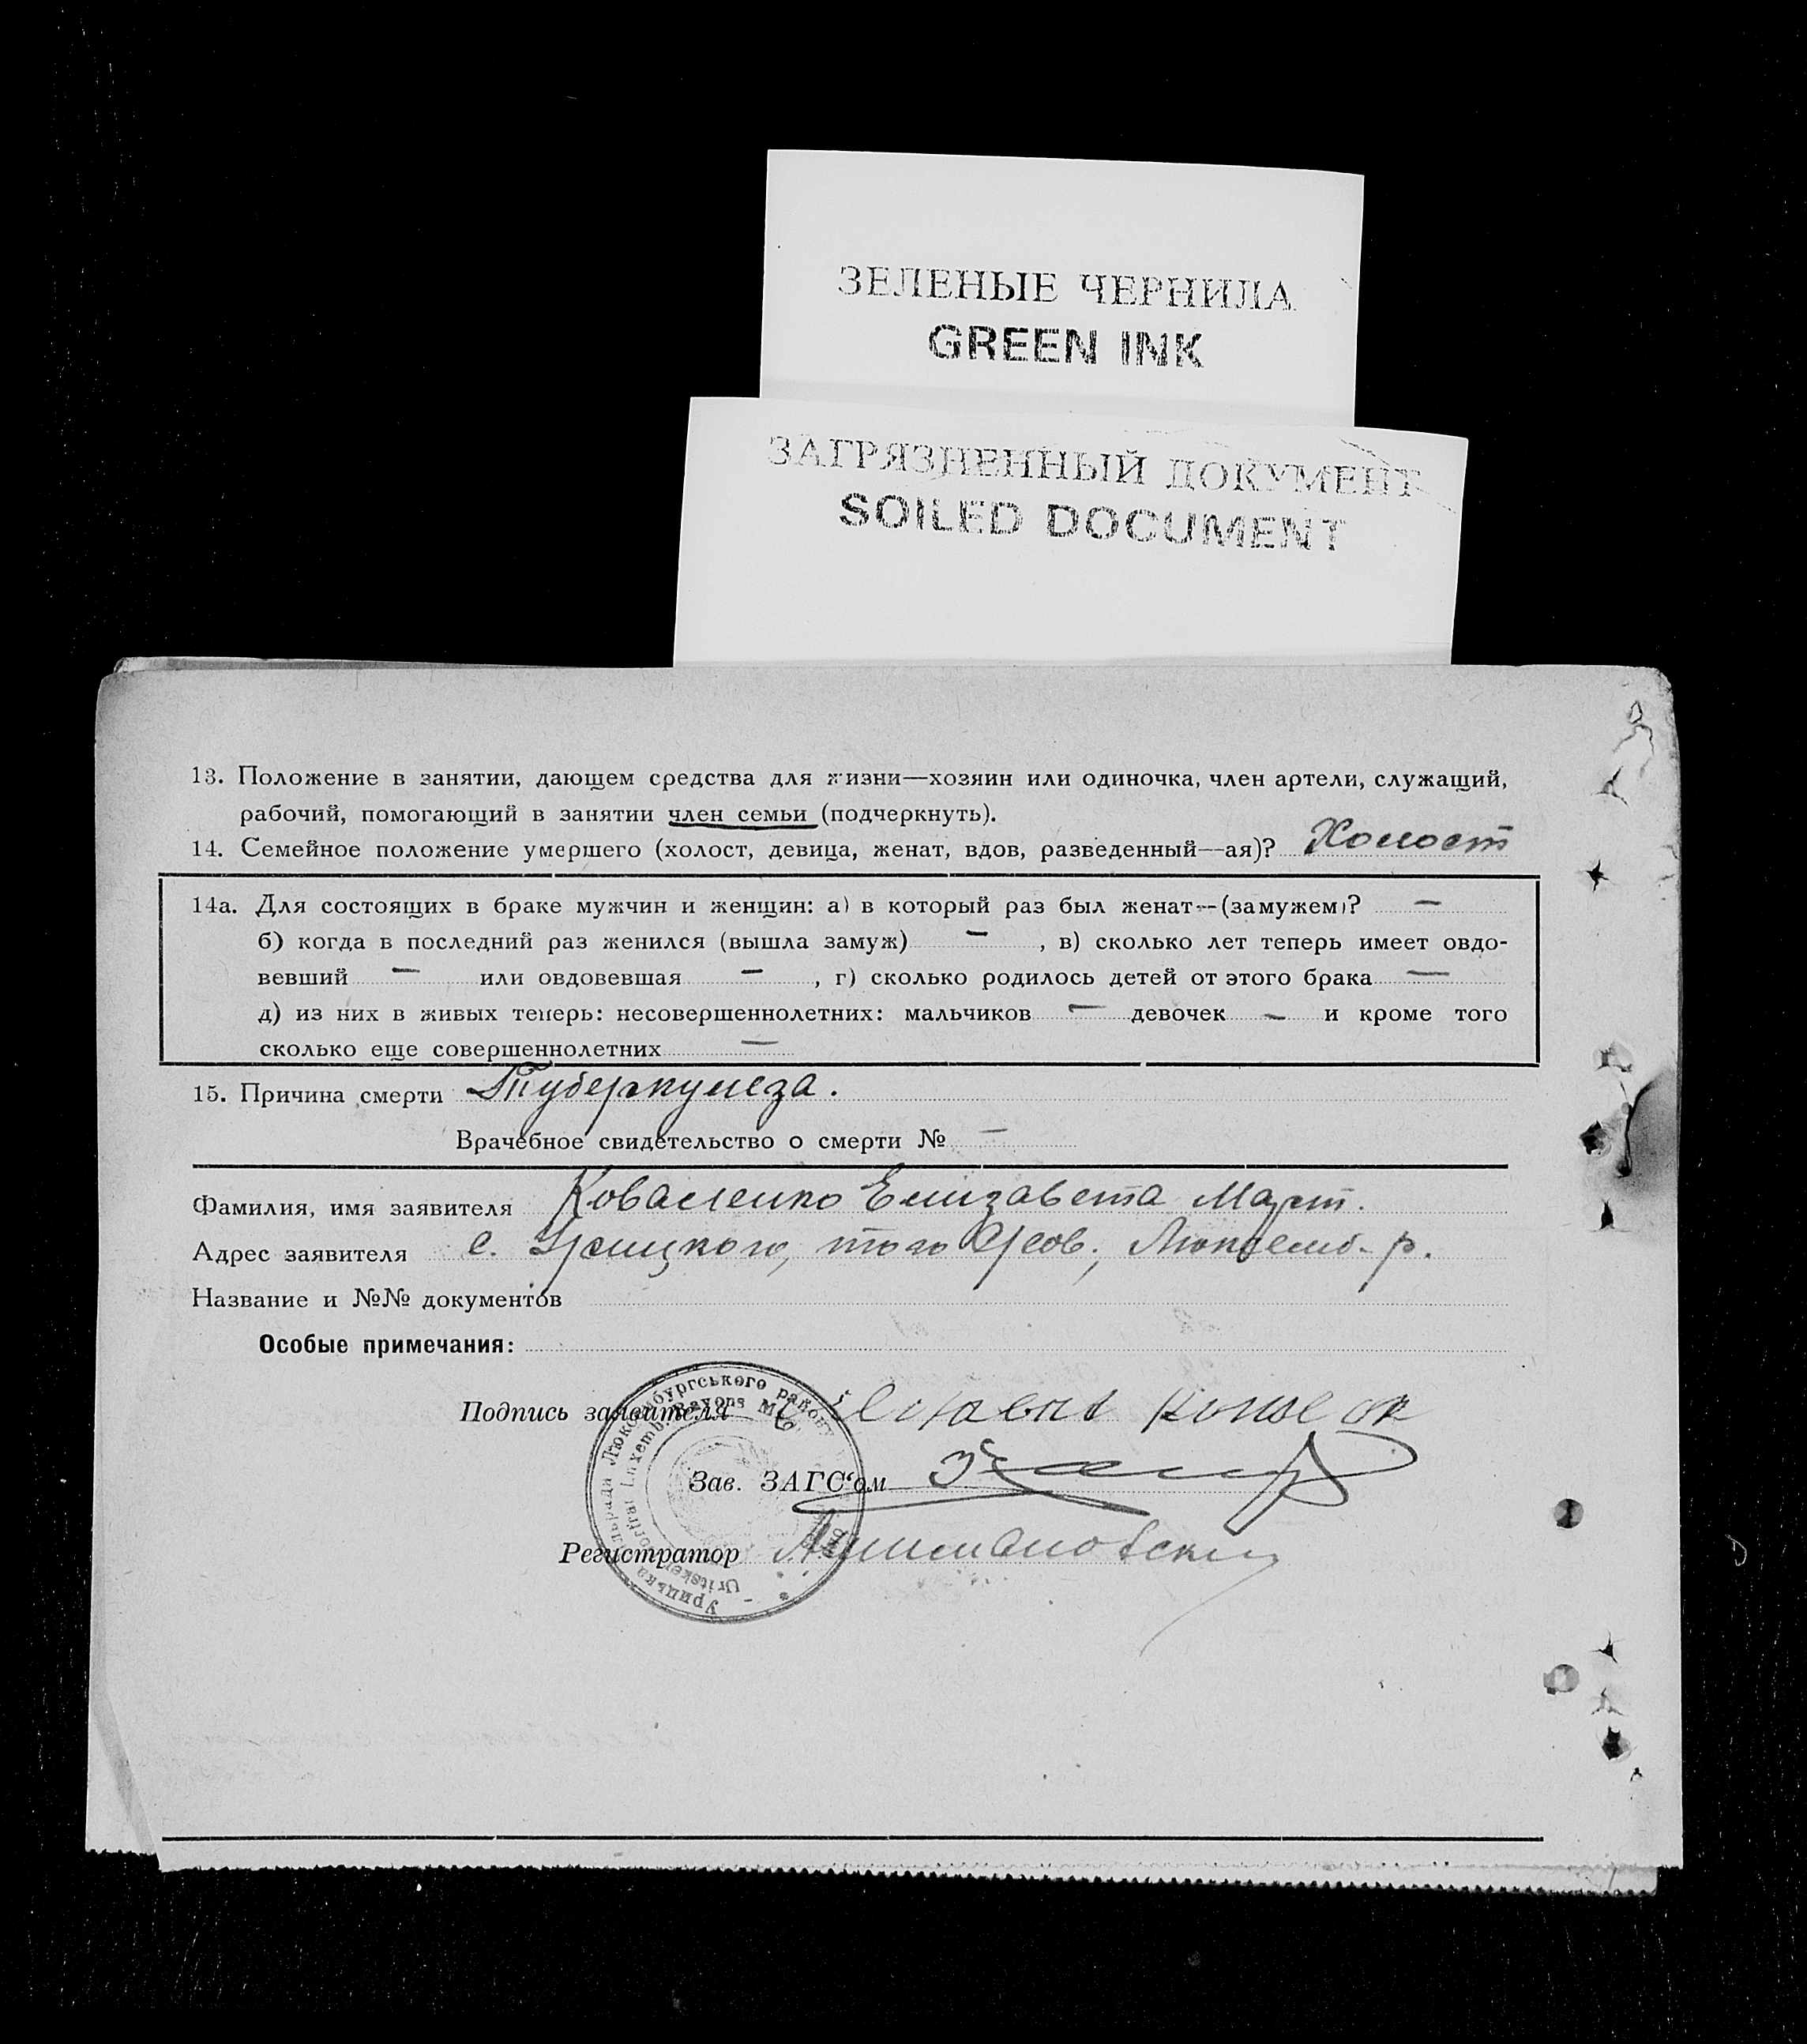 ЗЕЛЕНЫЕ ЧЕРНИЛА
GREEN INK
ЗАГРЯЗНЕННЫЙ ДОКУМЕНТ
SOILED DOCUMENT
13. Положение в занятии, дающем средства для жизни—хозяин или одиночка, член артели, служащий,
рабочий, помогающий в занятии член семьи (подчеркнуть).
14. Семейное положение умершего (холост, девица, женат, вдов, разведенный—ая)? Холост
14а. Для состоящих в браке мужчин и женщин: а) в который раз был женат—(замужем)? —
б) когда в последний раз женился (вышла замуж) — , в) сколько лет теперь имеет овдо-
вевший — или овдовевшая — , г) сколько родилось детей от этого брака —
д) из них в живых теперь: несовершеннолетних: мальчиков — девочек — и кроме того
сколько еще совершеннолетних —
15. Причина смерти Туберкулеза.
Врачебное свидетельство о смерти № —
Фамилия, имя заявителя Коваленко Елизавета Март.
Адрес заявителя с. Урицкого, того Люксемб. р.
Название и №№ документов
Особые примечания:
Подпись заявителя
Зав. ЗАГС‘ом
Регистратор
Люксембургського району
Урицька